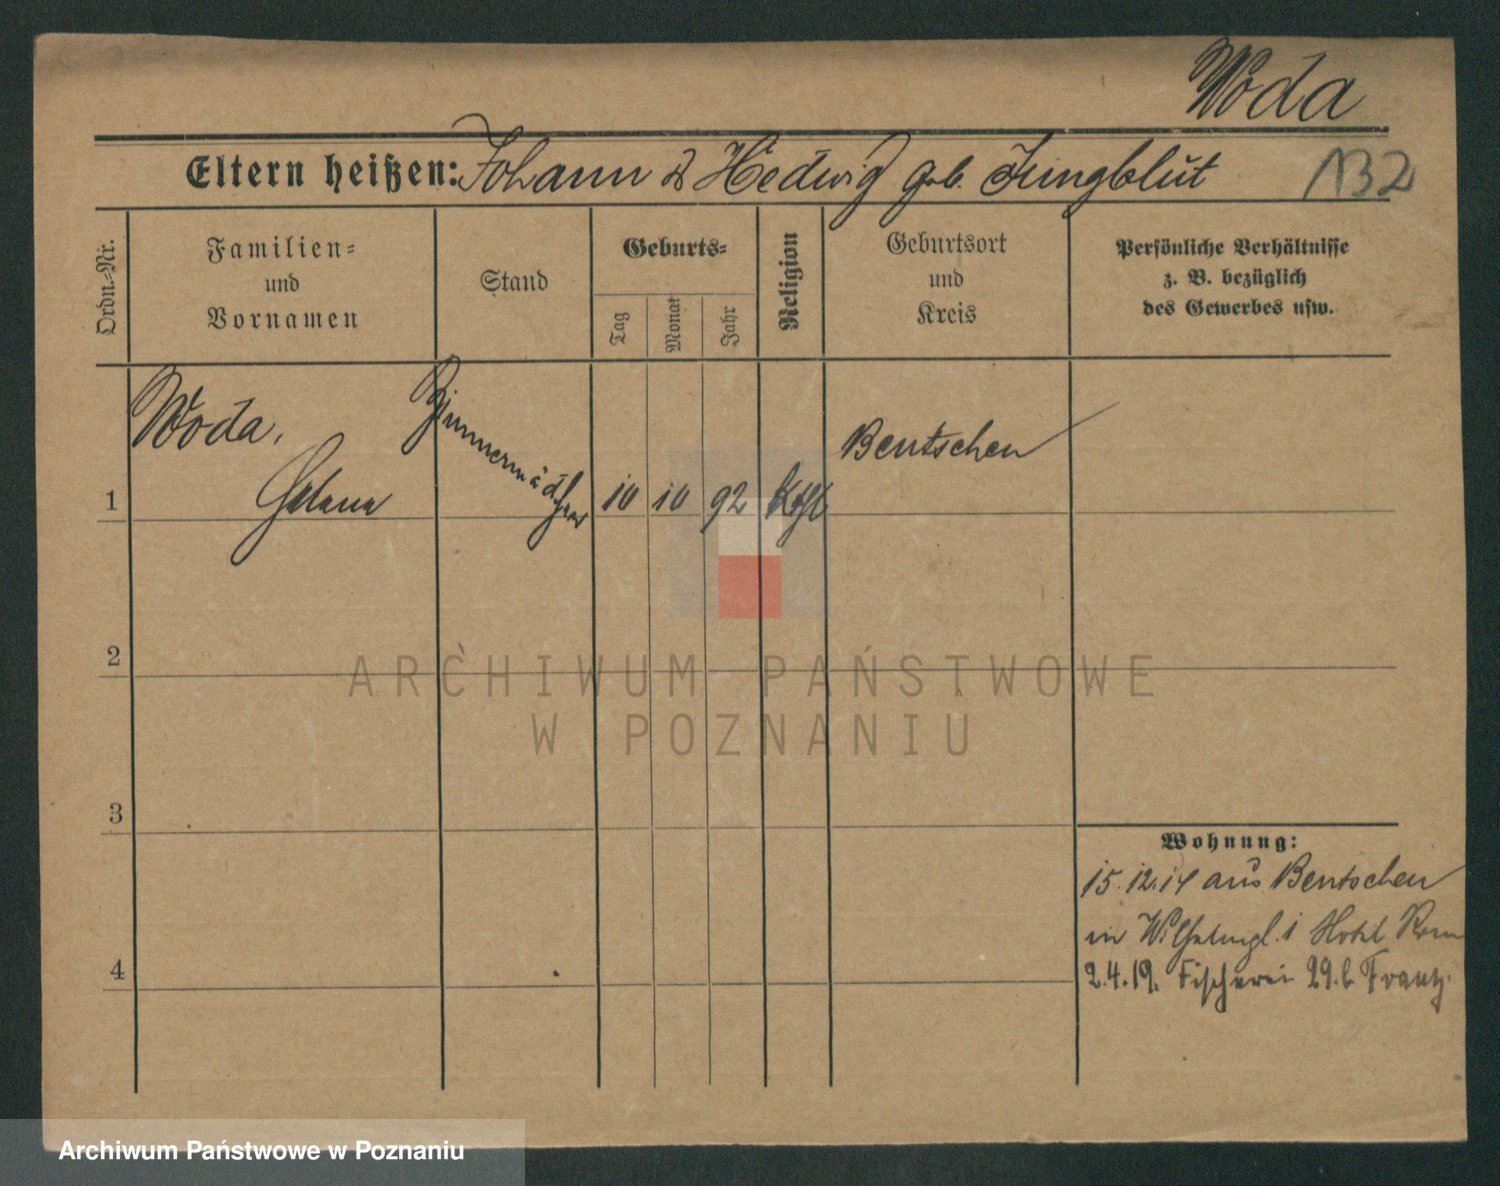 Woda
Eltern heißen: Johann & Hedwig geb. Jungblut
132
Ordn.-Nr.
Familien-
und
Vornamen
Stand
Geburts-
Tag
Monat
Jahr
Religion
Geburtsort
und
Kreis
Persönliche Verhältnisse
z. B. bezüglich
des Gewerbes usw.
Woda,
Zimmermädchen
Bentschen
1
10 10 92 Kthl
2
ARCHIWUM PAŃSTWOWE
W POZNANIU
3
Wohnung:
15.12.14 aus Bentschen
in 1 Hotel Rom
4
2.4.19. Fischerei 29. b. Frantz.
Archiwum Państwowe w Poznaniu